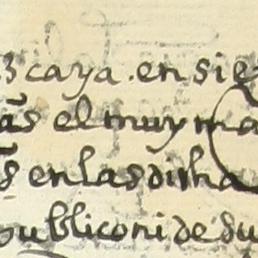 zcaya. en sie
as el muy ma
s en las dicha
publico ni de su